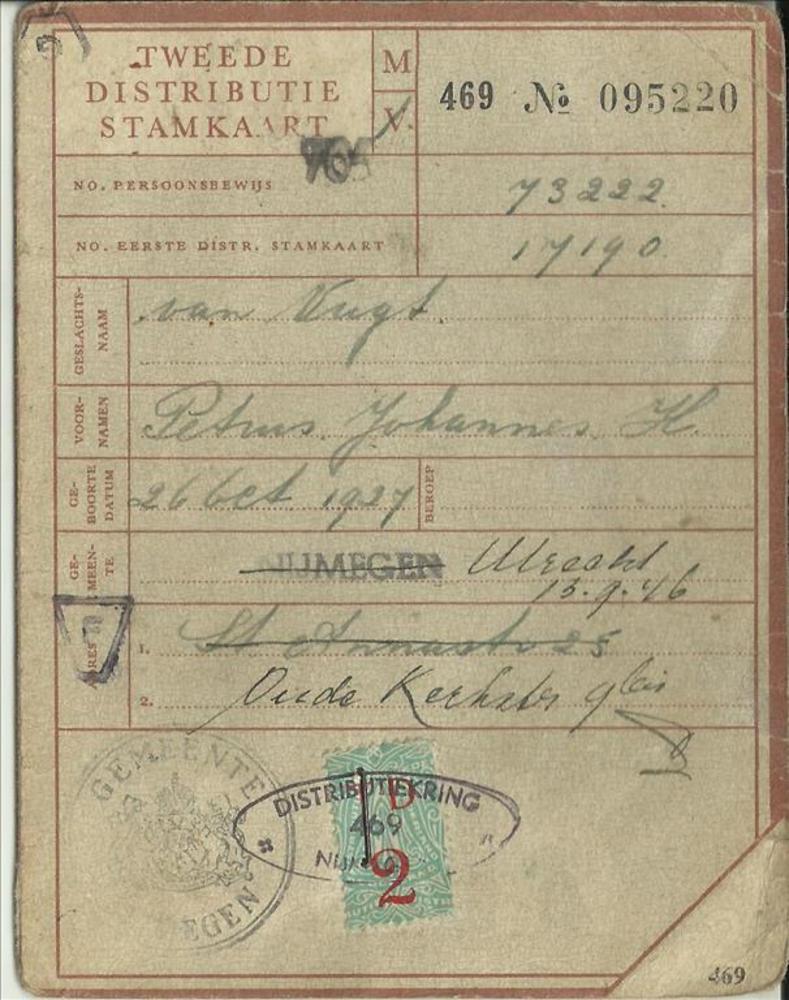 TWEEDE
DISTRIBUTIE
STAMKAART
M
V.
469 № 095220
NO. PERSOONSBEWIJS
73222.
NO. EERSTE DISTR. STAMKAART
17190.
GESLACHTS-
NAAM
van Vugt.
VOOR-
NAMEN
Petrus. Johannes. H.
GE-
BOORTE
DATUM
26 Oct 1927
BEROEP
GE-
MEEN-
TE
NIJMEGEN Utrecht
13.9.46
ADRES
1. St Annastr 25
2. Oude Kerkstr 9 bis
GEMEENTE
EGEN
DISTRIBUTIEKRING
469
D
2
469